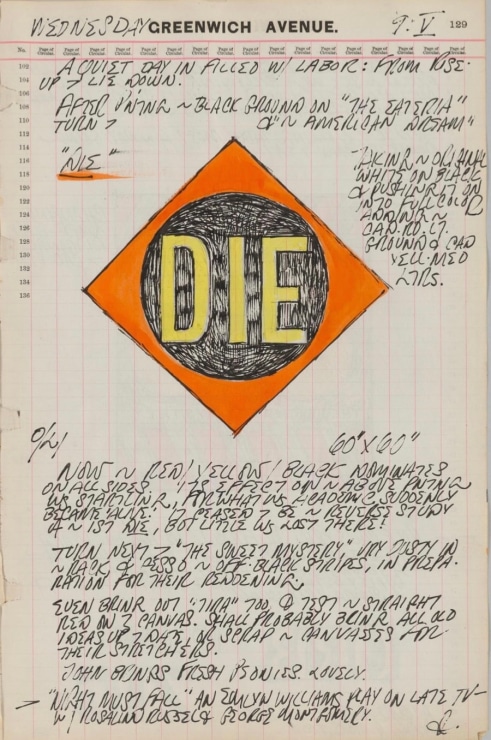 WEDNESDAY GREENWICH AVENUE. 9·V 129
No. Page of Circular. Page of Circular. Page of Circular. Page of Circular. Page of Circular. Page of Circular. Page of Circular. Page of Circular. Page of Circular. Page of Circular. Page of Circular. Page of Circular. Page of Circular. Page of Circular.
102 A QUIET DAY IN FILLED W/ LABOR: FROM RISE-
104 UP > LIE DOWN.
106 AFTER ~ BLACK GROUND ON "THE EATERIA"
108 TURN >
110 & "~ AMERICAN DREAM"
112
114
116 "DIE"
118
120
122
124
126
128
130
132
134
136
~ ORIGINAL
WHITE ON BLACK
& PUSHING IT ON
INTO FULL COLOR
ADDING ~
CAD. RD. LT.
GROUND & CAD
YELL. MED
LTRS.
DIE
O/L/ 60" X 60"
NOW ~ RED/YELLOW/BLACK DOMINATES
ON ALL SIDES. ITS EFFECT ON ~ ABOVE PNTING
WS STARTLING, FOR WHAT WS ACADEMIC SUDDENLY
BECAME 'ALIVE.' CEASED > BE ~ REVERSE STUDY
OF ~ 1ST DIE, BUT LITTLE WS LOST THERE!
TURN NEXT > "THE SWEET MYSTERY," VRY DUSTY IN
~ RACK & GESSO ~ OFF-BLACK STRIPES, IN PREPA-
RATION FOR THEIR REDOING.
EVEN BRING OUT "TIRA" TOO, & TEST ~ STRAIGHT
RED ON > CANVAS. SHALL PROBABLY BRING ALL OLD
IDEAS UP > DATE, OR SCRAP ~ CANVASSES FOR
THEIR STRETCHERS.
JOHN BRINGS FRESH PEONIES. LOVELY.
> "NIGHT MUST FALL" AN EMLYN WILLIAMS PLAY ON LATE TV-
W/ ROSALIND RUSSELL & GEORGE MONTGOMERY.